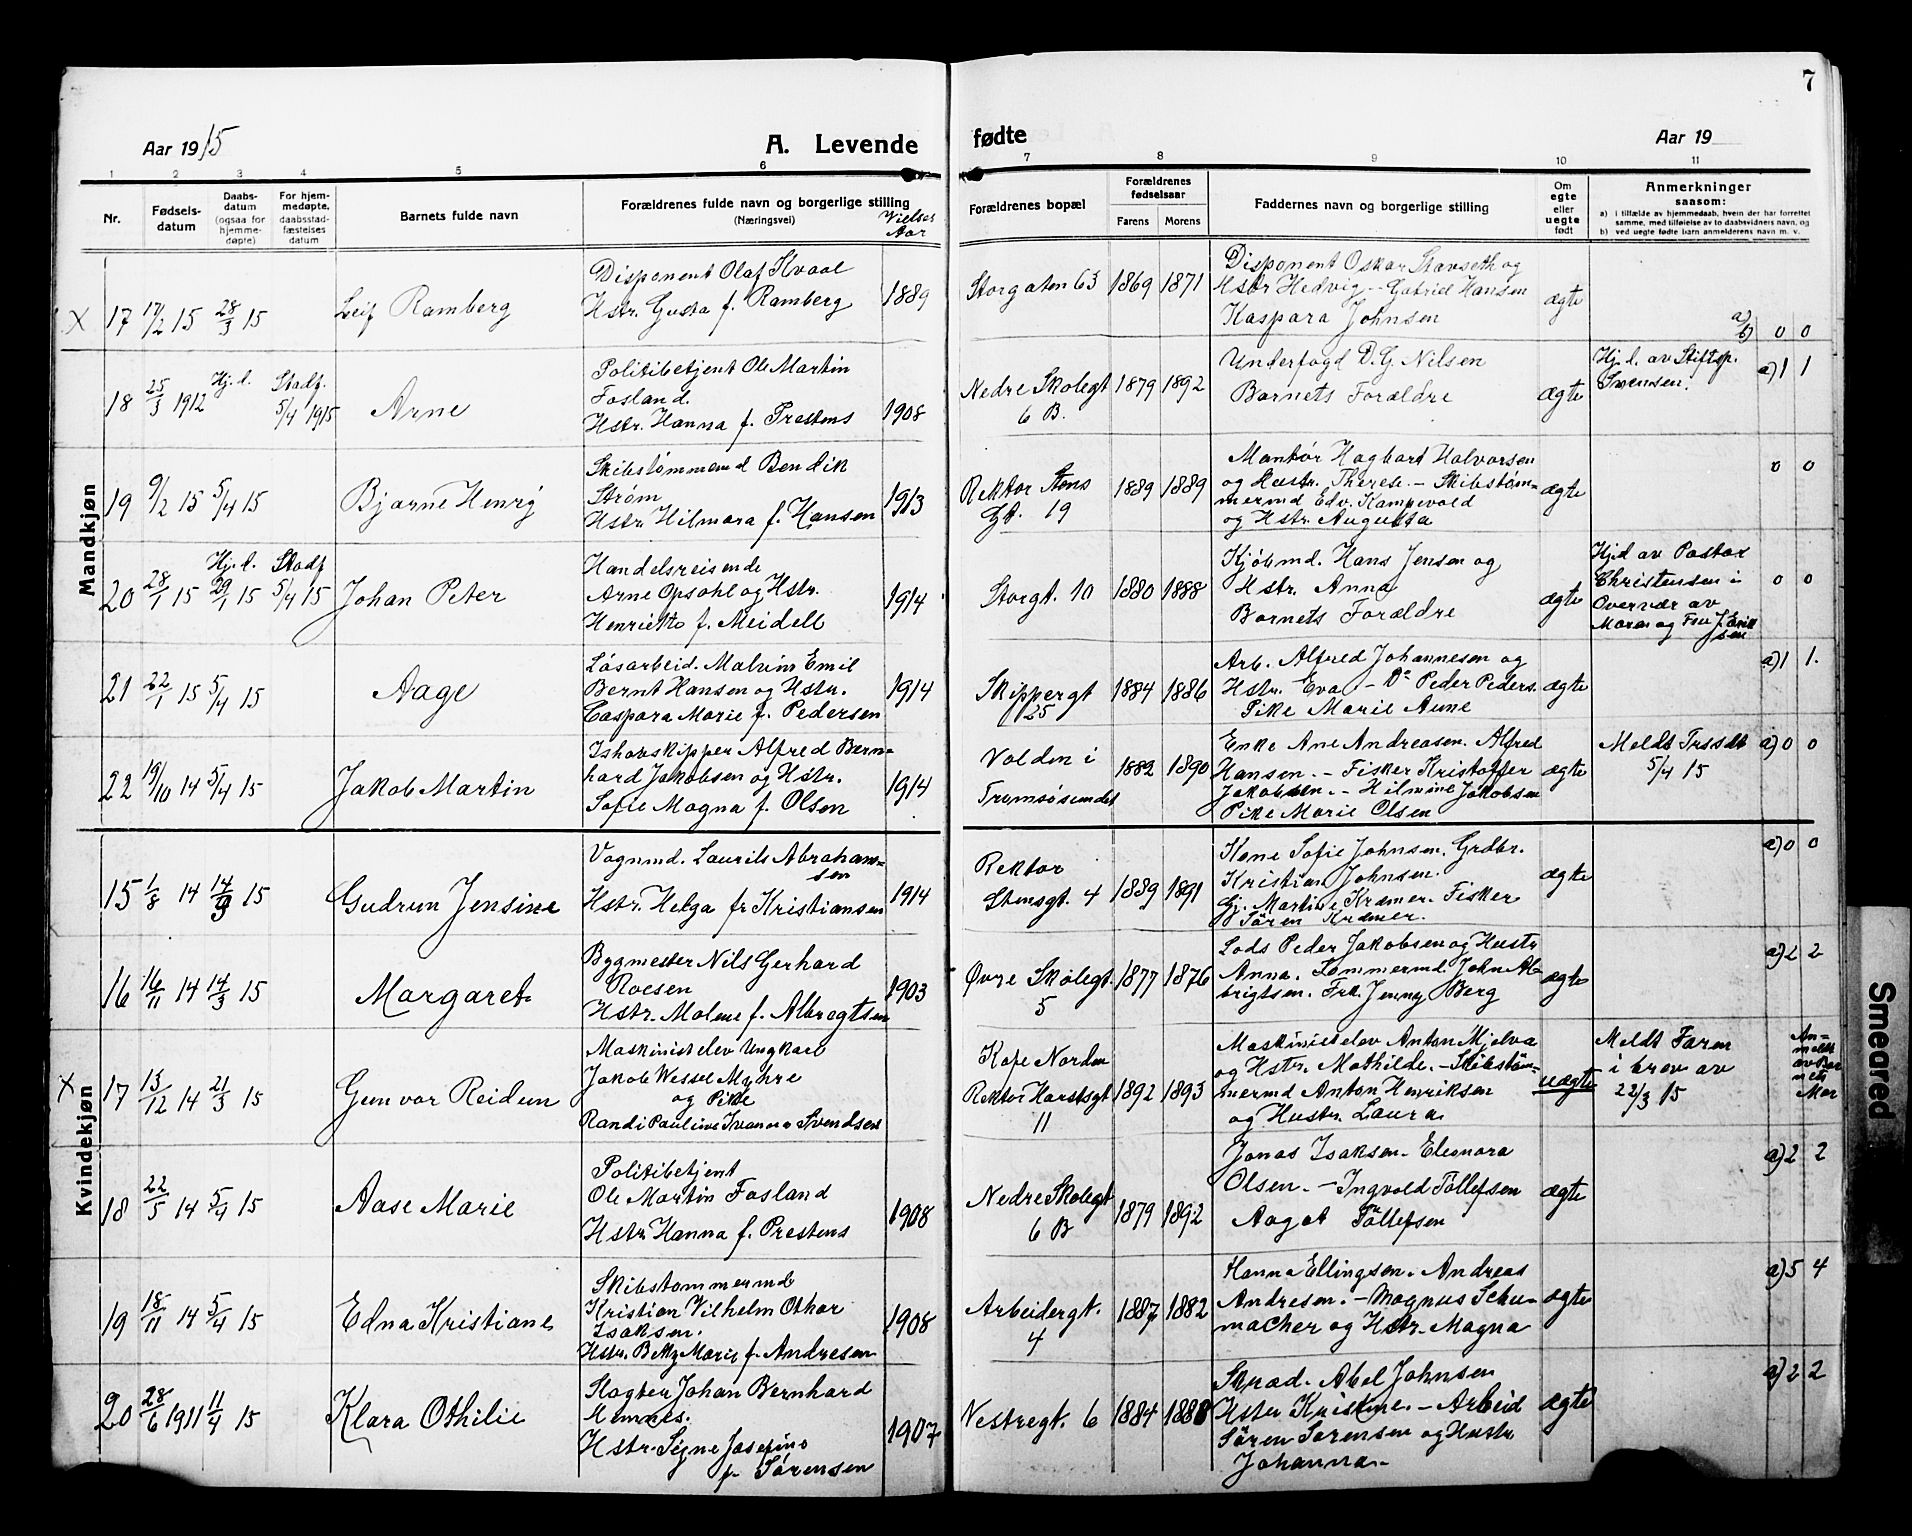 7
Aar 1915
A. Levende
fødte
Aar 19
1 2 3 4 5 6 7 8 9 10 11
Nr.
Fødsels-
datum
Daabs-
datum
(ogsaa for
hjemme-
døpte)
For hjem-
medøpte,
daabsstad-
fæstelses
datum
Barnets fulde navn
Forældrenes fulde navn og borgerlige stilling
(Næringsvei)
Vielses
Aar
Forældrenes bopæl
Forældrenes
fødselsaar
Farens Morens
Faddernes navn og borgerlige stilling
Om
egte
eller
uegte
født
Anmerkninger
saasom:
a) i tilfælde av hjemmedaab, hvem der har forrettet
samme, med tilføielse av to daabsvidners navn, og
b) ved uegte fødte barn anmelderens navn m. v.
Mandkjøn
X 17 17/2 15 28/3 15
Leif Ramberg
Disponent Olaf Kvaal
Hstr. Gusta f. Ramberg
1889
Storgaten 63
1869 1871
Disponent Oskar Stavseth og
Hstr Hedvig - Gabriel Hansen
Kaspara Johnsen
ægte
a)
b) 0 0
18 25/3 1912 Hj.d. Stadf. 5/4 1915
Arne
Politibetjent Ole Martin
Fosland.
Hstr. Hanna f. Prestens
1908
Nedre Skolegt
6 B.
1879 1892
Underfogd D. G. Nilsen
Barnets Forældre
ægte
Hj.d. av Stiftsp.
Svensen.
a) 1 1
19 9/2 15 5/4 15
Bjarne Henry
Skibstømmermd Bendik
Strøm
Hstr Hilmara f. Hansen
1913
Rektor Stens
Gt. 19
1889 1889
Montør Hagbart Halvorsen
og Hustr. Therese. - Skibstøm-
mermd Edv. Kampevold
og Hstr. Augusta
ægte
0 0
20 28/1 15 Hj.d. 29/1 15 Stadf 5/4 15
Johan Peter
Handelsreisende
Arne Opsahl og Hstr.
Henriette f. Meidell
1914
Storgt. 10
1880 1888
Kjøbmd. Hans Jensen og
Hstr. Anna
Barnets Forældre
ægte
Hjd av Pastor
Christensen i
Overvær av
Moren og Fru J. Erik
sen
0 0
21 22/1 15 5/4 15
Aage
Løsarbeid. Malvin Emil
Bernt Hansen og Hstr.
Caspara Marie f. Pedersen
1914
Skippergt
25
1884 1886
Arb. Alfred Johannesen og
Hstr. Eva - Do Peder Peders.
Pike Marie Aune
ægte
a) 1 1.
22 19/10 14 5/4 15
Jakob Martin
Ishavskipper Alfred Bern-
hard Jakobsen og Hstr.
Sofie Magna f. Olsen
1914
Volden i
Tromsøsundet
1882 1890
Enke Ane Andreasen. Alfred
Hansen. - Fisker Kristoffer
Jakobsen. - Hilmine Jakobsen
Pike Marie Olsen
ægte
Meldt Trssdt
5/4 15
a) 0 0
Kvindekjøn
15 1/8 14 14/3 15
Gudrun Jensine
Vognmd. Laurits Abraham-
sen
Hstr. Helga f. Kristiansen
1914
Rektor
Stensgt. 4
1889 1891
Kone Sofie Johnsen. Grdbr.
Kristian Johnsen.
Gj. Martine Kræmer. Fisker
Sören Kræmer.
ægte
a) 0 0
16 16/11 14 14/3 15
Margaret
Bygmester Nils Gerhard
Roesen
Hstr. Malene f. Albregtsen
1903
Øvre Skolegt.
5
1877 1876
Lods Peder Jakobsen og Hustr
Anna. Tømmermd. John Al-
brigtsen. Frk. Jenny Berg
ægte
a) 2 2
X 17 13/12 14 21/3 15
Gunvor Reidun
Maskinistelev Ungkarl
Jakob Wessel Myhre
og Pike
Randi Pauline Ivanara Svendsen
Kafe Norden
Rektor Horstsgt
11
1892 1893
Maskinistelev Anton Mjelva
og Hstr. Mathilde. - Skibstøm-
mermd Anton Henriksen
og Hustr. Laura
uægte
Meldt Faren
i brev av
22/3 15
An-
meldt
av Bar
nets
Mor
18 22/5 14 5/4 15
Aase Marie
Politibetjent
Ole Martin Fosland
Hstr Hanna f. Prestens
1908
Nedre Skolegt
6 B
1879 1892
Jonas Isaksen - Eleonora
Olsen. - Ingvold Tollefsen
Aagot Tollefsen
ægte
a) 2 2
19 18/11 14 5/4 15
Edna Kristiane
Skibstømmermd
Kristian Vilhelm Othar
Isaksen.
Hstr. Betzy Marie f. Andresen
1908
Arbeidergt.
4
1887 1882
Hanna Ellingsen. Andreas
Andresen. - Magnus Schu-
macher og Hstr. Magna
ægte
a) 5 4
20 28/6 1911 11/4 15
Klara Othilie
Slagter Johan Bernhard
Hemnes.
Hstr. Signe Josefine
f. Sørensen
1907
Vestregt. 6
1884 1888
Skræd. Abel Johnsen
Hstr Kristine. - Arbeid
Sören Sørensen og Hustr
Johanna.
ægte
a) 2 2
Smeared